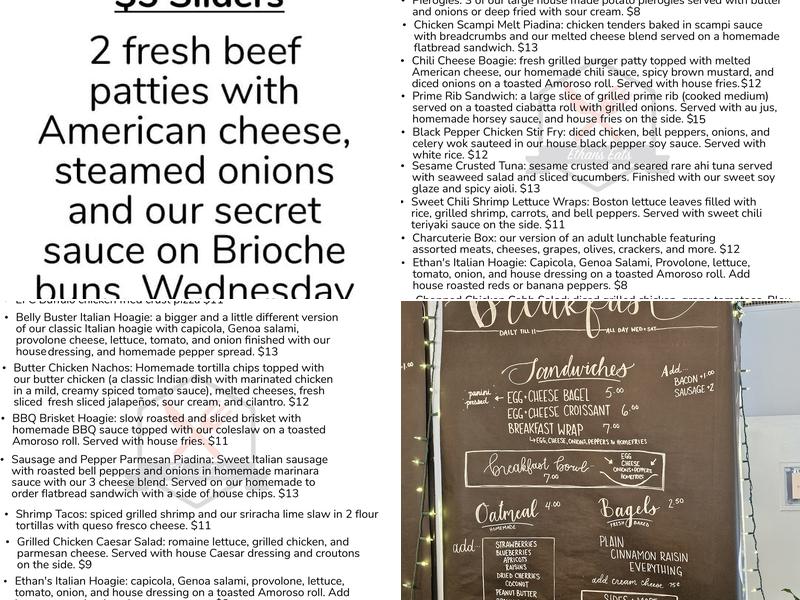 $5 Sliders
2 fresh beef
patties with
American cheese,
steamed onions
and our secret
sauce on Brioche
buns. Wednesday
Pierogies: 3 of our large house made potato pierogies served with butter
and onions or deep fried with sour cream. $8
• Chicken Scampi Melt Piadina: chicken tenders baked in scampi sauce
with breadcrumbs and our melted cheese served on a homemade
flatbread sandwich. $13
• Chili Cheese Boagie: fresh grilled burger patty topped with melted
American cheese, our homemade chili sauce, spicy brown mustard, and
diced onions on a toasted Amoroso roll. Served with house fries.$12
• Prime Rib Sandwich: a large slice of grilled prime rib (cooked medium)
served on a toasted ciabatta roll with grilled onions. Served with au jus,
homemade horsey sauce, and house fries on the side. $15
• Black Pepper Chicken Stir Fry: diced chicken, bell peppers, onions, and
celery wok sauteed in our house black pepper soy sauce. Served with
white rice. $12
Ethans Eats
• Sesame Crusted Tuna: sesame crusted and seared rare ahi tuna served
with seaweed salad and sliced cucumbers. Finished with our sweet soy
glaze and spicy aioli. $13
• Sweet Chili Shrimp Lettuce Wraps: Boston lettuce leaves filled with
rice, grilled shrimp, carrots, and bell peppers. Served with sweet chili
teriyaki sauce on the side. $11
• Charcuterie Box: our version of an adult lunchable featuring
assorted meats, cheeses, grapes, olives, crackers, and more. $12
• Ethan's Italian Hoagie: Capicola, Genoa Salami, Provolone, lettuce,
tomato, onion, and house dressing on a toasted Amoroso roll. Add
house roasted reds or banana peppers. $8
Chopped Chicken Cobb Salad: diced grilled chicken, grape tomatoes, Bleu
• EFC Buffalo chicken fried crust pizza $11
• Belly Buster Italian Hoagie: a bigger and a little different version
of our classic Italian hoagie with capicola, Genoa salami,
provolone cheese, lettuce, tomato, and onion finished with our
house dressing, and homemade pepper spread. $13
• Butter Chicken Nachos: Homemade tortilla chips topped with
our butter chicken (a classic Indian dish with marinated chicken
in a mild, creamy spiced tomato sauce), melted cheeses, fresh
sliced fresh sliced jalapeños, sour cream, and cilantro. $12
• BBQ Brisket Hoagie: slow roasted and sliced brisket with
homemade BBQ sauce topped with our coleslaw on a toasted
Amoroso roll. Served with house fries. $11
• Sausage and Pepper Parmesan Piadina: Sweet Italian sausage
with roasted bell peppers and onions in homemade marinara
sauce with our 3 cheese blend. Served on our homemade to
order flatbread sandwich with a side of house chips. $13
• Shrimp Tacos: spiced grilled shrimp and our sriracha lime slaw in 2 flour
tortillas with queso fresco cheese. $11
• Grilled Chicken Caesar Salad: romaine lettuce, grilled chicken, and
parmesan cheese. Served with house Caesar dressing and croutons
on the side. $9
• Ethan's Italian Hoagie: capicola, Genoa salami, provolone, lettuce,
tomato, onion, and house dressing on a toasted Amoroso roll. Add
Breakfast
DAILY TILL 11 ALL DAY WED + SAT
Sandwiches
Add...
BACON +1.00
SAUSAGE +2
panini pressed
EGG+CHEESE BAGEL 5.00
EGG+CHEESE CROISSANT 6.00
BREAKFAST WRAP 7.00
EGG, CHEESE, ONIONS, PEPPERS + HOMEFRIES
breakfast bowl
7.00
EGG
CHEESE
ONIONS+PEPPERS
HOMEFRIES
Oatmeal 4.00
HOMEMADE
add...
STRAWBERRIES
BLUEBERRIES
APRICOTS
RAISINS
DRIED CHERRIES
COCONUT
PEANUT BUTTER
Bagels 2.50
FRESH BAKED
PLAIN
CINNAMON RAISIN
EVERYTHING
add cream cheese .75¢